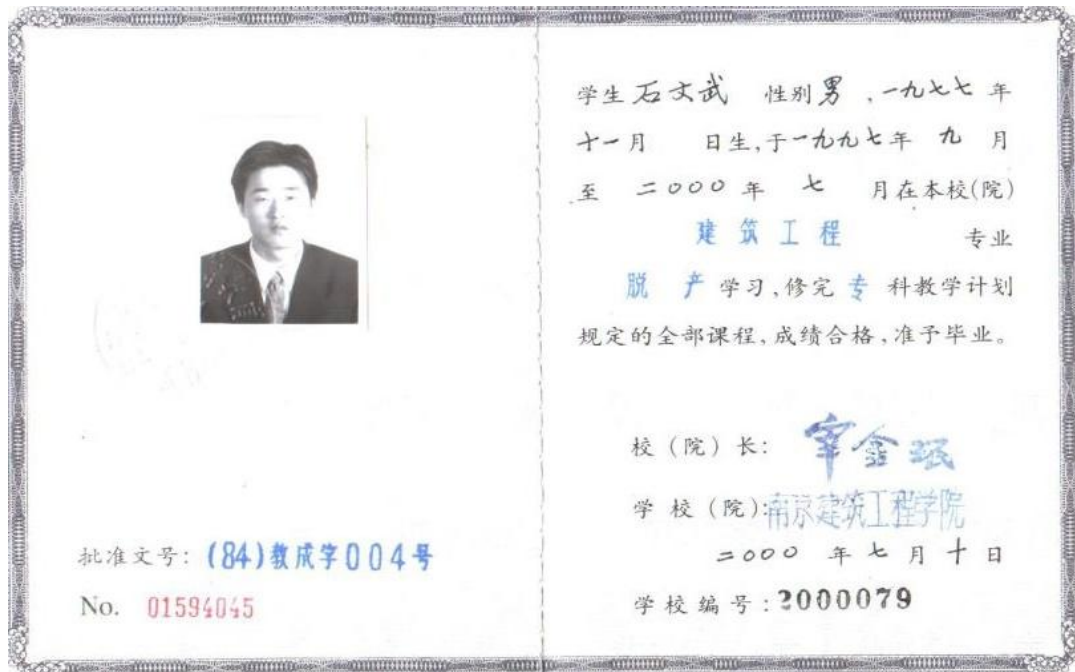 批准文号: (84)教成字004号
No. 01594045
学生 石文武 性别 男 , 一九七七 年
十一月 日生,于一九九七年 九 月
至 二000 年 七 月在本校(院)
建筑工程 专业
脱产 学习,修完 专 科教学计划
规定的全部课程,成绩合格,准予毕业。
校 (院) 长: 宰金珉
学 校 (院): 南京建筑工程学院
二000 年 七 月 十 日
学 校 编 号: 2000079